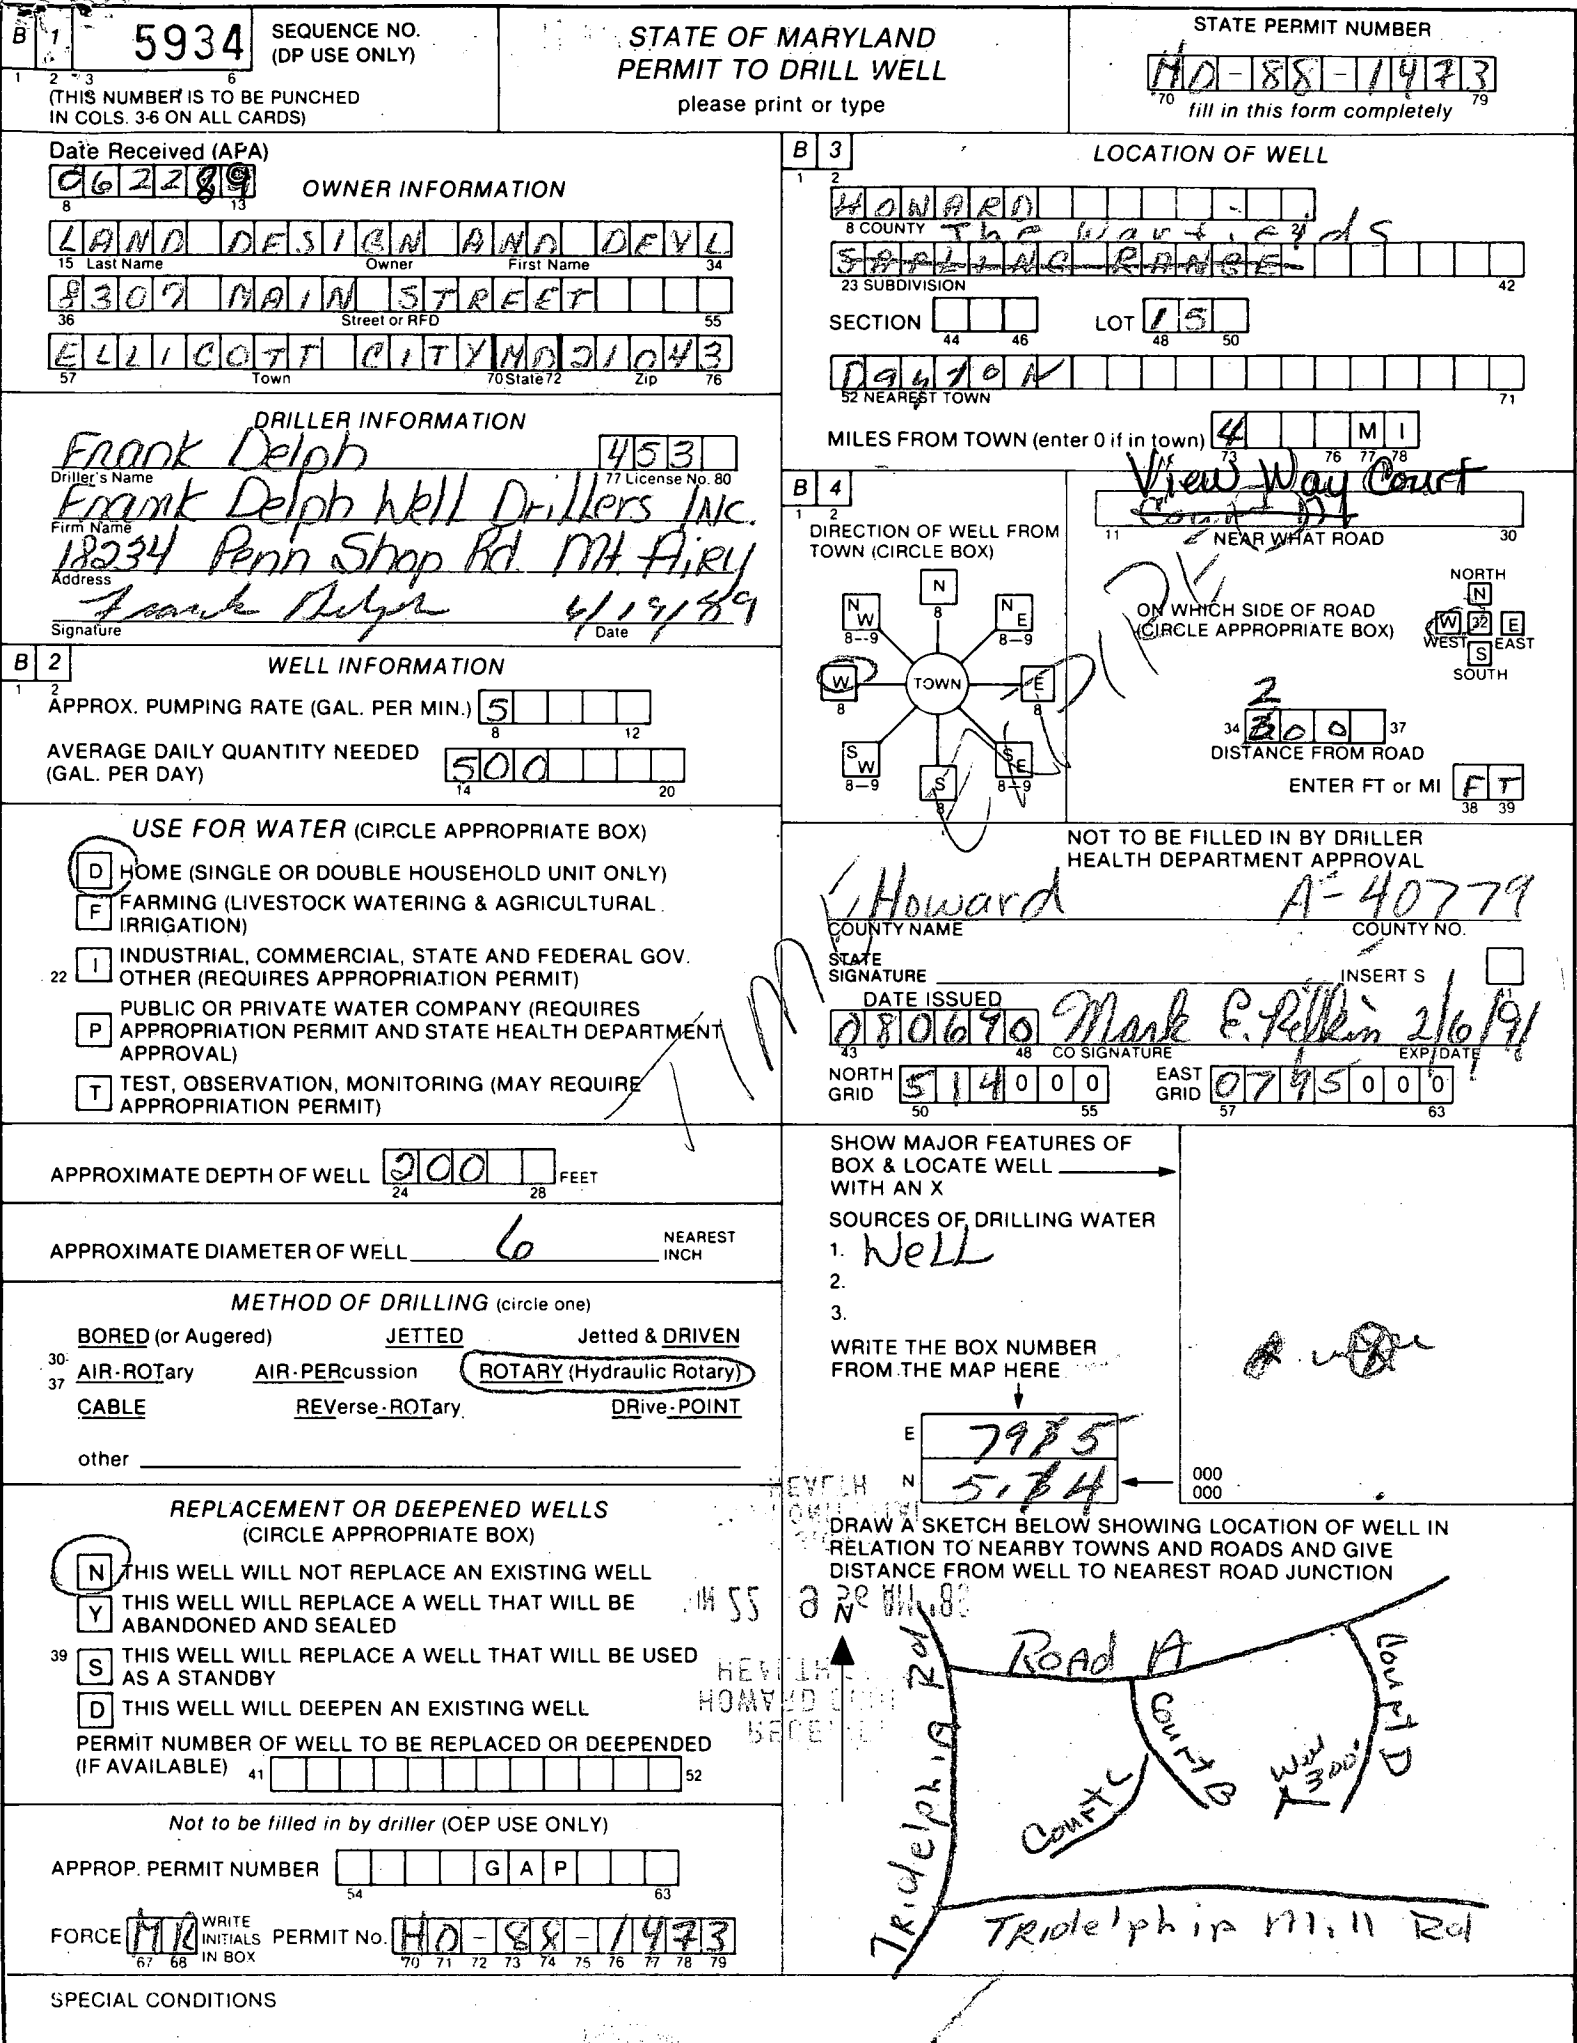 B 1 5934 SEQUENCE NO. (DP USE ONLY)
1 2 3 6
(THIS NUMBER IS TO BE PUNCHED
IN COLS. 3-6 ON ALL CARDS)
STATE OF MARYLAND
PERMIT TO DRILL WELL
please print or type
STATE PERMIT NUMBER
HO-88-1473
70 79
fill in this form completely
Date Received (APA)
062289
8 13
OWNER INFORMATION
LAND DESIGN AND DEVL
15 Last Name Owner First Name 34
8307 MAIN STREET
36 Street or RFD 55
ELLICOTT CITY MD 21043
57 Town 70 State 72 Zip 76
DRILLER INFORMATION
Frank Delph 453
Driller's Name 77 License No. 80
Frank Delph Well Drillers Inc.
Firm Name
18234 Penn Shop Rd. Mt. Airy
Address
Frank Delph 6/19/89
Signature Date
B 2 WELL INFORMATION
1 2
APPROX. PUMPING RATE (GAL. PER MIN.) 5
8 12
AVERAGE DAILY QUANTITY NEEDED
(GAL. PER DAY) 500
14 20
USE FOR WATER (CIRCLE APPROPRIATE BOX)
D HOME (SINGLE OR DOUBLE HOUSEHOLD UNIT ONLY)
F FARMING (LIVESTOCK WATERING & AGRICULTURAL
IRRIGATION)
22 I INDUSTRIAL, COMMERCIAL, STATE AND FEDERAL GOV.
OTHER (REQUIRES APPROPRIATION PERMIT)
P PUBLIC OR PRIVATE WATER COMPANY (REQUIRES
APPROPRIATION PERMIT AND STATE HEALTH DEPARTMENT
APPROVAL)
T TEST, OBSERVATION, MONITORING (MAY REQUIRE
APPROPRIATION PERMIT)
APPROXIMATE DEPTH OF WELL 200 FEET
24 28
APPROXIMATE DIAMETER OF WELL 6 NEAREST
INCH
METHOD OF DRILLING (circle one)
BORED (or Augered) JETTED Jetted & DRIVEN
30-37 AIR-ROTary AIR-PERcussion ROTARY (Hydraulic Rotary)
CABLE REVerse-ROTary DRive-POINT
other
REPLACEMENT OR DEEPENED WELLS
(CIRCLE APPROPRIATE BOX)
N THIS WELL WILL NOT REPLACE AN EXISTING WELL
Y THIS WELL WILL REPLACE A WELL THAT WILL BE
ABANDONED AND SEALED
39 S THIS WELL WILL REPLACE A WELL THAT WILL BE USED
AS A STANDBY
D THIS WELL WILL DEEPEN AN EXISTING WELL
PERMIT NUMBER OF WELL TO BE REPLACED OR DEEPENDED
(IF AVAILABLE) 41 52
Not to be filled in by driller (OEP USE ONLY)
APPROP. PERMIT NUMBER G A P
54 63
FORCE MR WRITE INITIALS IN BOX PERMIT No. HO-88-1473
67 68 70 71 72 73 74 75 76 77 78 79
SPECIAL CONDITIONS
B 3 LOCATION OF WELL
1 2
HOWARD
8 COUNTY The Warfields
SAPLING RANGE
23 SUBDIVISION 42
SECTION LOT 15
44 46 48 50
Dayton
52 NEAREST TOWN 71
MILES FROM TOWN (enter 0 if in town) 4 M I
73 76 77 78
B 4
1 2
DIRECTION OF WELL FROM
TOWN (CIRCLE BOX)
N
8
N W N E
8-9 8-9
W TOWN E
8 8
S W S E
8-9 8-9
S
8
View Way Court
Court D
11 NEAR WHAT ROAD 30
ON WHICH SIDE OF ROAD
(CIRCLE APPROPRIATE BOX)
NORTH
N
W 32 E
WEST EAST
S
SOUTH
2
34 300 37
DISTANCE FROM ROAD
ENTER FT or MI F T
38 39
NOT TO BE FILLED IN BY DRILLER
HEALTH DEPARTMENT APPROVAL
Howard A-40779
COUNTY NAME COUNTY NO.
STATE
SIGNATURE INSERT S
41
DATE ISSUED
080690 Mark E. Rifkin 2/6/91
43 48 CO SIGNATURE EXP. DATE
NORTH GRID 514000 EAST GRID 0795000
50 55 57 63
SHOW MAJOR FEATURES OF
BOX & LOCATE WELL
WITH AN X
SOURCES OF DRILLING WATER
1. Well
2.
3.
WRITE THE BOX NUMBER
FROM THE MAP HERE
E 795
N 514
000
000
DRAW A SKETCH BELOW SHOWING LOCATION OF WELL IN
RELATION TO NEARBY TOWNS AND ROADS AND GIVE
DISTANCE FROM WELL TO NEAREST ROAD JUNCTION
N
Tridelphia Rd
Road A
Court B
Court C
Court D
Well
300'
Tridelphia Mill Rd